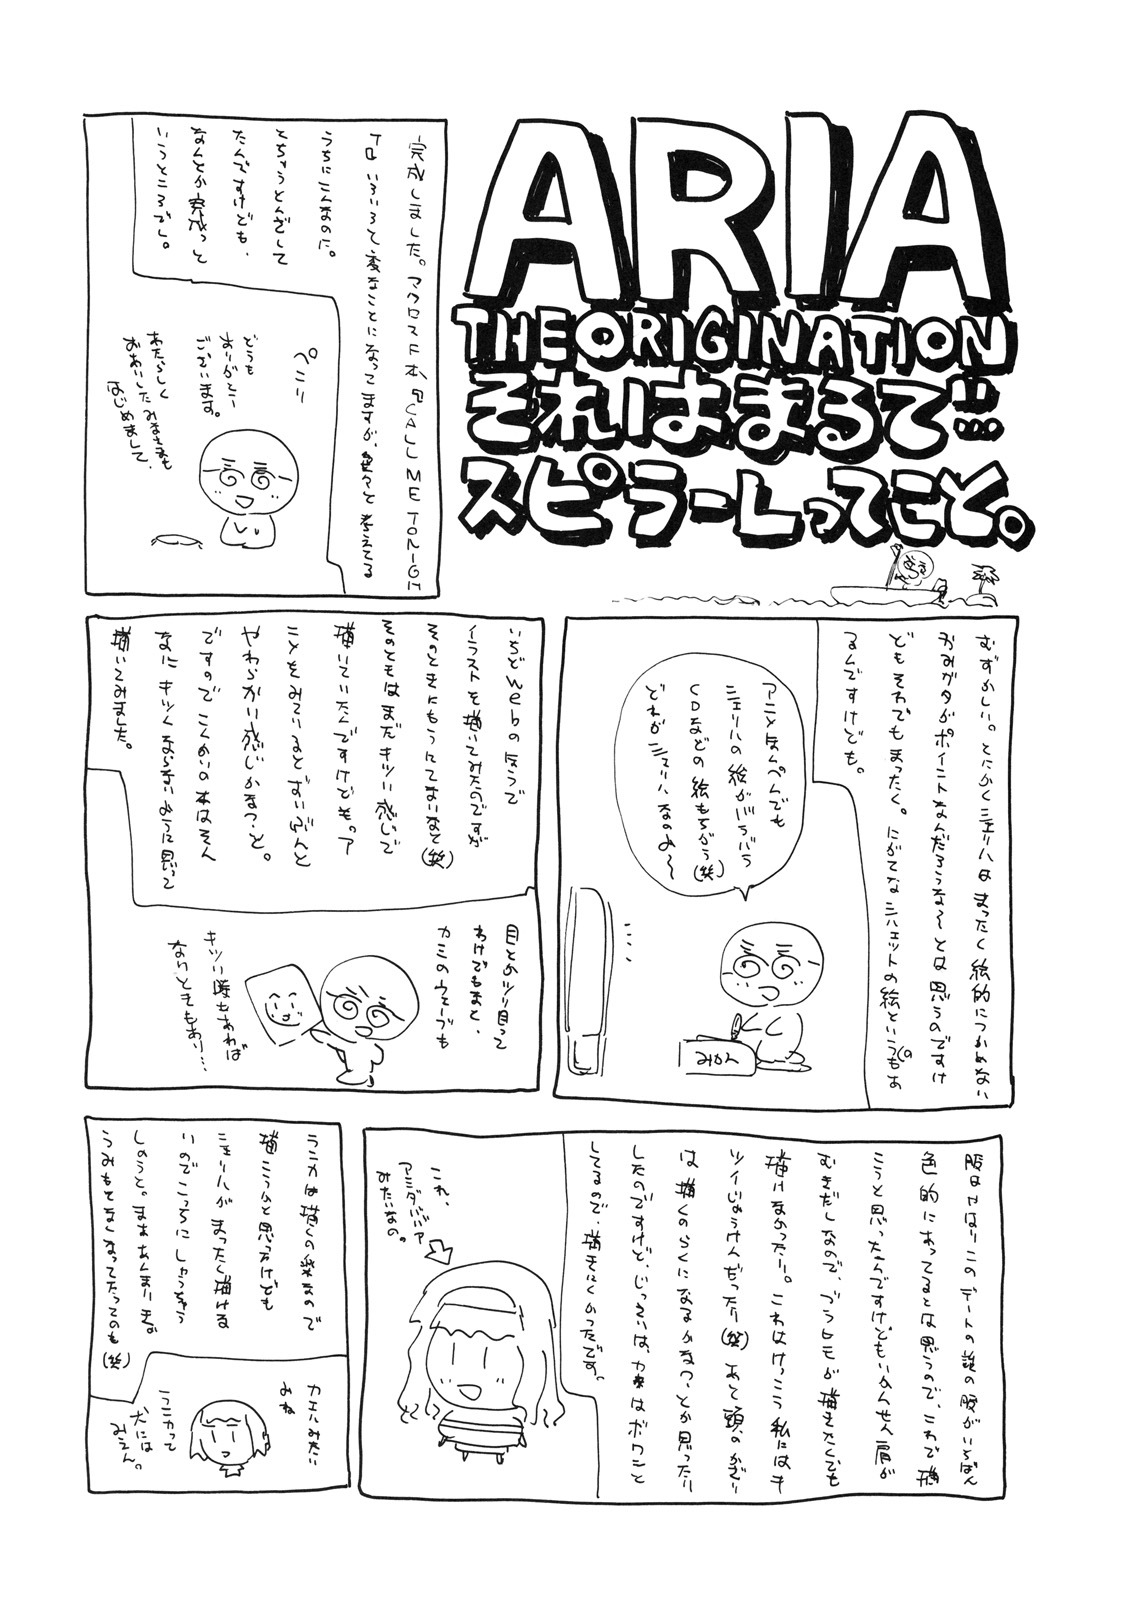 ARIA
THE ORIGINATION
それはまるで…
スピラーレってこと。
完成しました。マクロスF本、『CALL ME TONIGH
T』いろいろと変なことになってますが、色々と考えてる
うちにこんなのに。
とちゅうとんざして
たんですけども、
なんとか完成っと
いうところでし。
ペこり
どうも
ありがとう
ございます。
あたらしく
おあいしたみなさまも
はじめまして、
むずかしい。とにかくシェリルはまったく絵的につかめない
かみガタがポイントなんだろうな～とは思うのですけ
どもそれでもまったく。にがてなシルエットの絵というのもあ
るんですけども。
アニメほんぺんでも
シェリルの絵がバラバラ
CDなどの絵もちがう(笑)
どれがシェリルなのよ～
みかん
いちどwebのほうで
イラストを描いてみたのですが
そのときにもうにてないなと(笑)
そのときはまだキツい感じで
描いていたんですけどもっア
ニメをみているとずいぶんと
やわらかい感じかなっ、と。
ですのでこんかいの本はそん
なにキツくならないように思って
描いてみました。
目とかツリ目って
わけでもなく、
カミのウェーブも
キツい時もあれば
ないときもあり…
服はやはりこのデートの話の服がいちばん
色的にあってるとは思うので、これで描
こうと思ったんですけどもいかんせん肩が
むきだしなので、ブラヒモが描きたくても
描けなかったり。これはけっこう私にはキ
ツイじょうけんだったり(笑)あと頭のかざり
は描くのラクになるかなっ、とか思ったり
したのですけど、じっさいは、カオはボワンと
してるので、描きにくかったです。
これ、
アミダババア
みたいなの。
ランカは描くの楽なので
描こうかと思ったけども
シェリルがまったく描ける
いのでこっちにしちゃう
しゅうと。まああんまりイミな
うみもなくなってたってのも(笑)
カエルみたい
よね
ランカって
犬には
みえん。